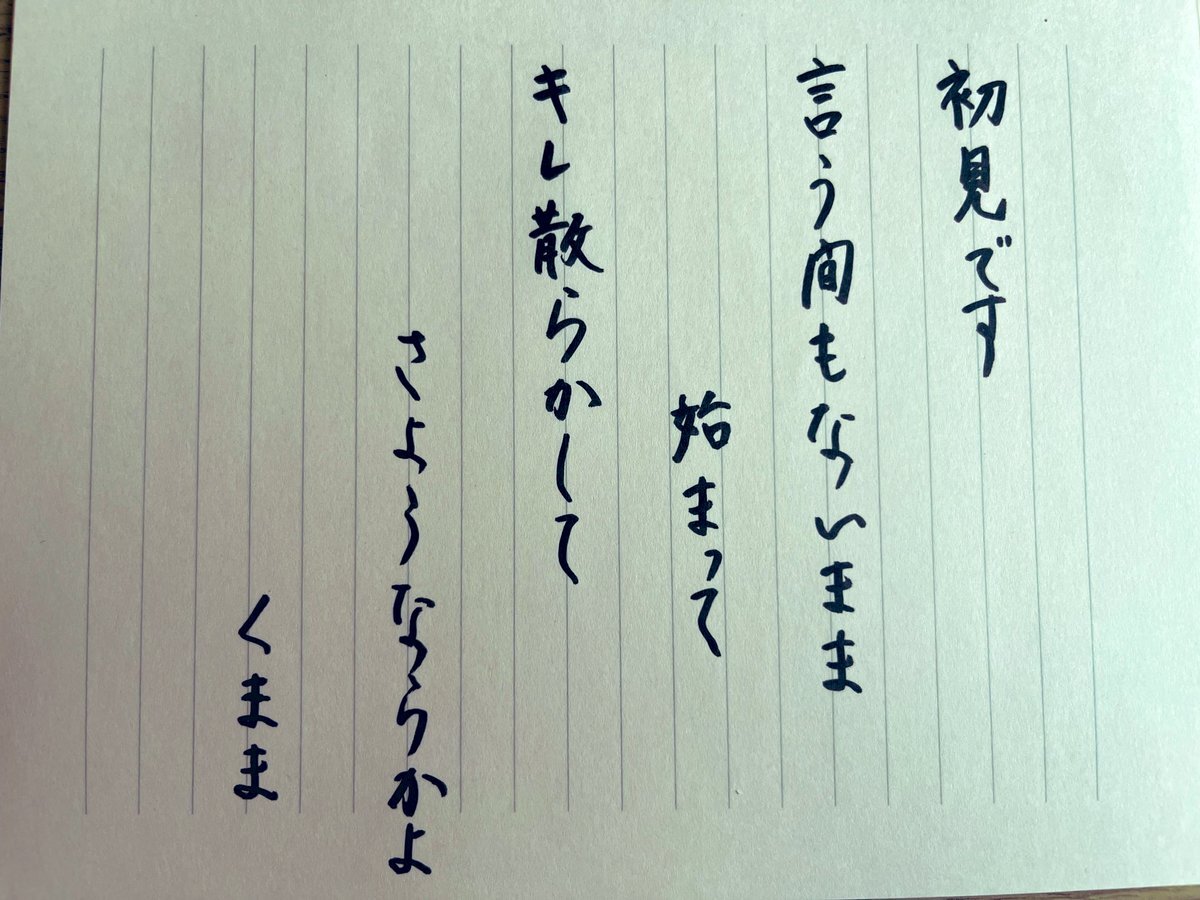 初見です
言う間もないまま
始まって
キレ散らかして
さようならかよ
くまま